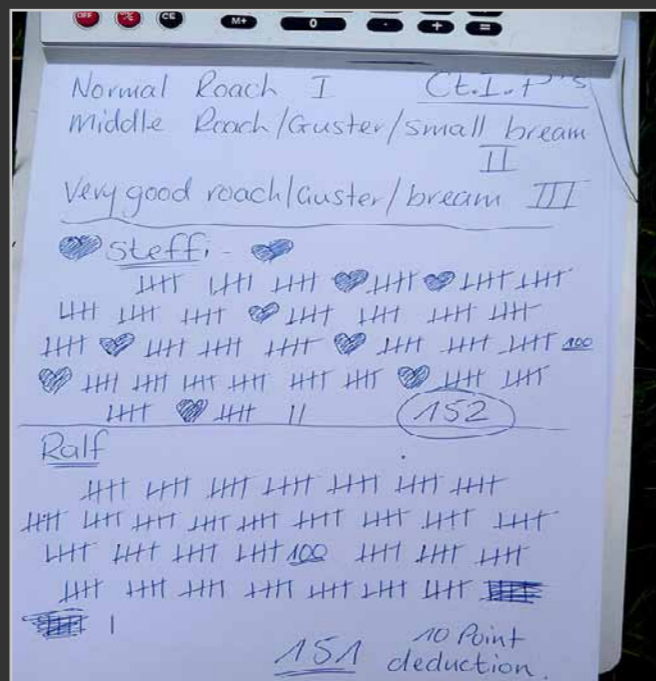 OFF % CE M+ 0 · + =
Normal Roach I
Middle Roach/Guster/small bream
II
Very good roach/Guster/bream III
Steffi -
100
152
Ralf
100
151 10 Point
deduction.